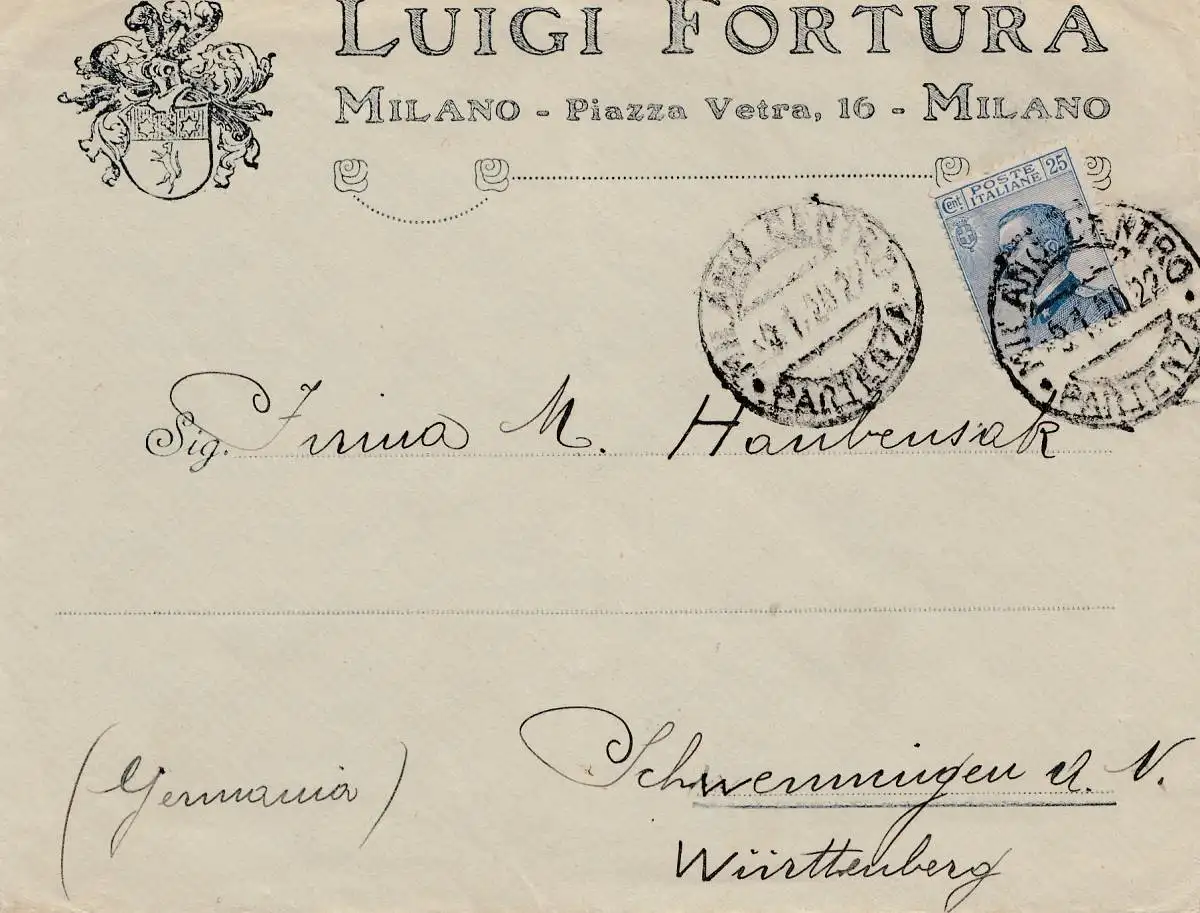 LUIGI FORTURA
MILANO - Piazza Vetra, 16 - MILANO
POSTE ITALIANE
Cent. 25
MILANO CENTRO
PARTENZA
MILANO CENTRO
PARTENZA
Sig. Firma M. Haubensak
Schwenningen a. N.
(Germania)
Württenberg